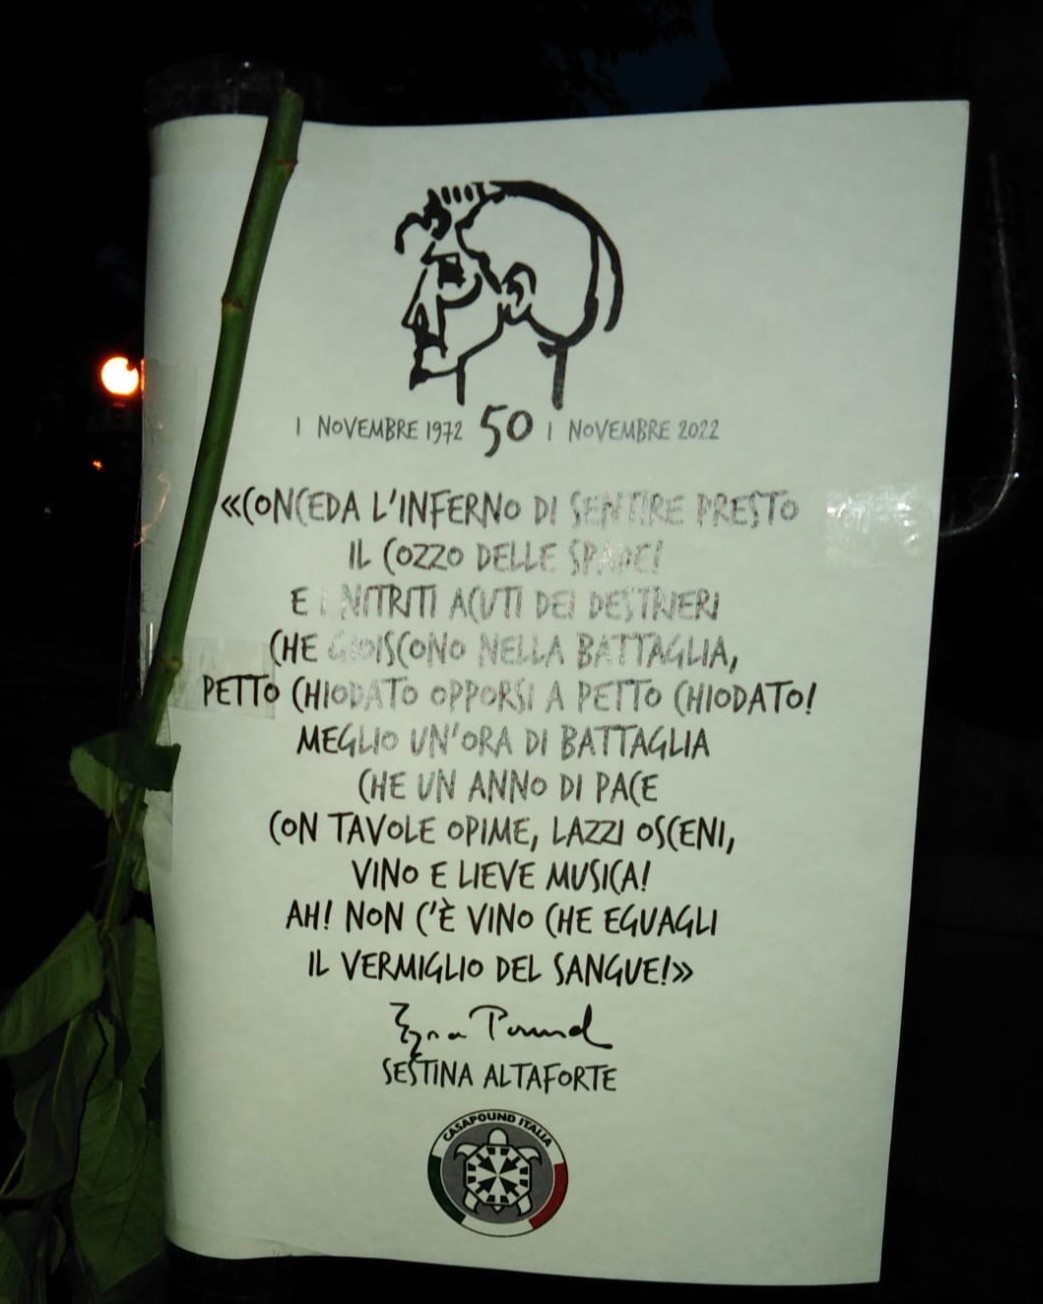 1 NOVEMBRE 1972 50 1 NOVEMBRE 2022
«CONCEDA L'INFERNO DI SENTIRE PRESTO
IL COZZO DELLE SPADE!
E I NITRITI ACUTI DEI DESTRIERI
CHE GIOISCONO NELLA BATTAGLIA,
PETTO CHIODATO OPPORSI A PETTO CHIODATO!
MEGLIO UN'ORA DI BATTAGLIA
CHE UN ANNO DI PACE
CON TAVOLE OPIME, LAZZI OSCENI,
VINO E LIEVE MUSICA!
AH! NON C'È VINO CHE EGUAGLI
IL VERMIGLIO DEL SANGUE!»
Ezra Pound
SESTINA ALTAFORTE
CASAPOUND ITALIA